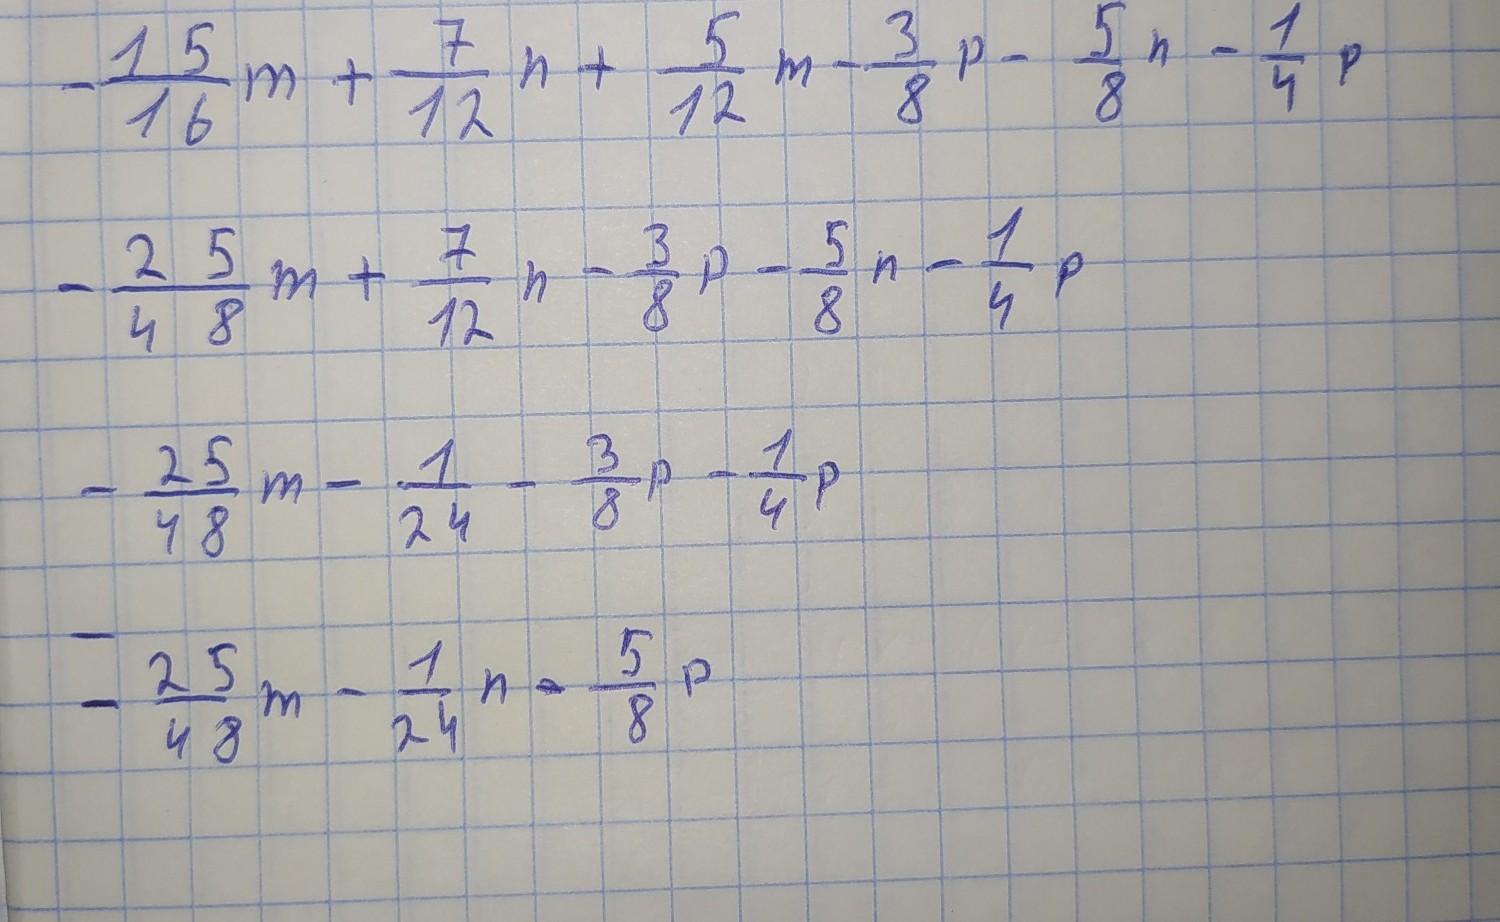 -15/16 m + 7/12 n + 5/12 m - 3/8 p - 5/8 n - 1/4 p
-25/48 m + 7/12 n - 3/8 p - 5/8 n - 1/4 p
-25/48 m - 1/24 - 3/8 p - 1/4 p
-
-25/48 m - 1/24 n - 5/8 p